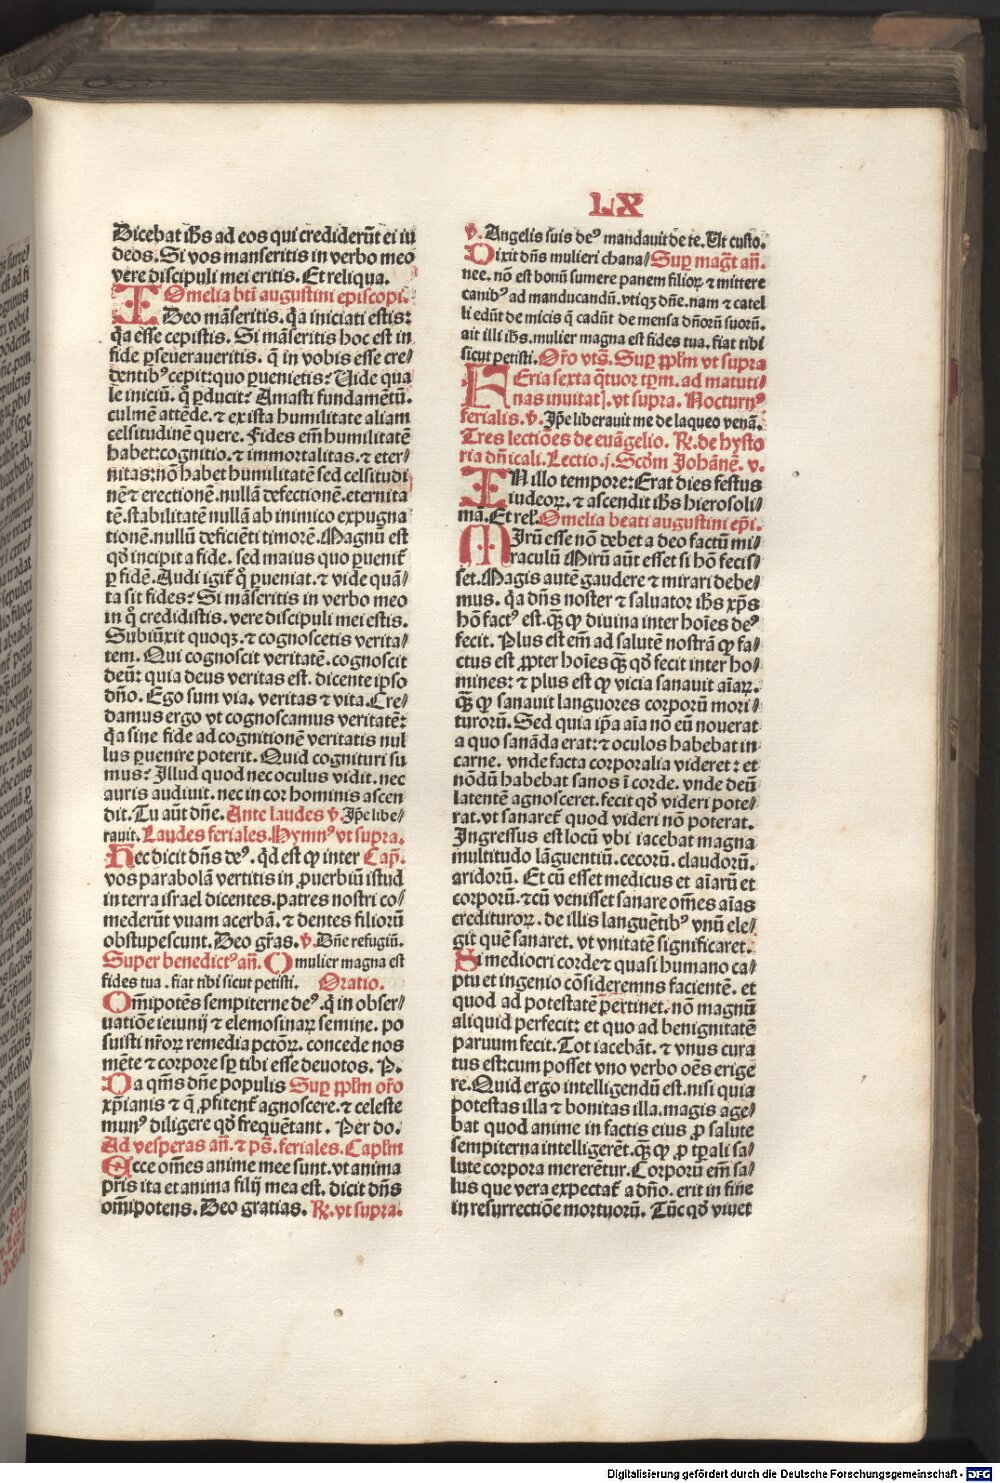 LX
Dicebat ihs ad eos qui crediderūt ei iu
deos. Si vos manseritis in verbo meo
vere discipuli mei eritis. Et reliqua.
Omelia bti augustini episcopi.
I Deo māseritis. q̄a iniciati estis:
q̄a esse cepistis. Si māseritis hoc est in
fide pseueraueritis. q̄ in vobis esse cre/
dentibꝰ cepit: quo puenietis? Uide qua
le iniciū. q̊ pducit? Amasti fundamētū.
culmē attēde. ⁊ ex ista humilitate aliam
celsitudinē quere. Fides em̄ humilitatē
habet: cognitio. ⁊ immortalitas. ⁊ eter/
nitas: nō habet humilitatē sed celsitudi
nē ⁊ erectionē. nullā defectionē. eternita
tē. stabilitatē nullā ab inimico expugna
tionē. nullū deficiēti timorē. Magnū est
qd̄ incipit a fide. sed maius quo puenit̄
p fidē. Audi igit̄ q̊ pueniat. ⁊ vide quā/
ta sit fides? Si māseritis in verbo meo
in q̊ credidistis. vere discipuli mei estis.
Subiūxit quoqꝫ. ⁊ cognoscetis verita/
tem. Qui cognoscit veritatē. cognoscit
deū: quia deus veritas est. dicente ipso
dn̄o. Ego sum via. veritas ⁊ vita. Cre/
damus ergo vt cognoscamus veritatē:
q̄a sine fide ad cognitionē veritatis nul
lus puenire poterit. Quid cognituri su
mus? Illud quod nec oculus vidit. nec
auris audiuit. nec in cor hominis ascen
dit. Tu aūt dn̄e. Ante laudes ℣ Ip̄e libe/
rauit. Laudes feriales. Hymnꝰ vt supra.
Hec dicit dn̄s deꝰ. q̊d est ꝙ inter Cap̄.
vos parabolā vertitis in ꝓuerbiū istud
in terra israel dicentes. patres nostri co/
mederūt vuam acerbā. ⁊ dentes filiorū
obstupescunt. Deo gr̄as. ℣. Dn̄e refugiū.
Super benedictꝰ an̄. O mulier magna est
fides tua. fiat tibi sicut petisti. Oratio.
Om̄ipotēs sempiterne deꝰ. q̄ in obser/
uatiōe ieiunij ⁊ elemosinaꝝ semine. po
suisti nr̄oꝝ remedia pctōꝝ. concede nos
mēte ⁊ corpore sp̄ tibi esse deuotos. P.
Da qm̄s dn̄e populis Sup̄ pplm or̄o
xp̄ianis ⁊ q̄ ꝓfitent̄ agnoscere. ⁊ celeste
munꝰ diligere qd̄ frequētant. Per do.
Ad vesperas an̄. ⁊ ps̄. feriales. Caplm
Ecce om̄es anime mee sunt. vt anima
pr̄is ita et anima filij mea est. dicit dn̄s
om̄ipotens. Deo gratias. ℟. vt supra.
℣. Angelis suis deꝰ mandauit de te. Ut custo.
Dixit dn̄s mulieri chana/ Sup̄ maḡt an̄.
nee. nō est bonū sumere panem filioꝝ ⁊ mittere
canibꝰ ad manducandū. vtiqꝫ dn̄e. nam ⁊ catel
li edūt de micis q̄ cadūt de mensa dn̄orū suorū.
ait illi ihs. mulier magna est fides tua. fiat tibi
sicut petisti. Or̄o vts̄. Sup̄ pplm vt supra
Feria sexta q̄tuor tpm. ad matuti/
nas inuitat. vt supra. Nocturnꝰ
ferialis. ℣. Ip̄e liberauit me de laqueo venā.
Tres lectiōes de euāgelio. ℟. de hysto
ria dn̄icali. Lectio. j. Scdm Johānē. v.
IN illo tempore: Erat dies festus
iudeoꝝ. ⁊ ascendit ihs hierosoli/
mā. Et rel. Omelia beati augustini ep̄i.
Mirū esse nō debet a deo factū mi/
raculū Mirū aūt esset si hō fecis/
set. Magis autē gaudere ⁊ mirari debe/
mus. q̄a dn̄s noster ⁊ saluator ihs xp̄s
hō factꝰ est. q̄ꝫ ꝙ diuina inter hoīes deꝰ
fecit. Plus est em̄ ad salutē nostrā ꝙ fa/
ctus est ꝓpter hoīes q̄ꝫ qd̄ fecit inter ho/
mines: ⁊ plus est ꝙ vicia sanauit aīaꝝ.
q̄ꝫ ꝙ sanauit languores corporū mori/
turorū. Sed quia ip̄a aīa nō eū nouerat
a quo sanāda erat: ⁊ oculos habebat in
carne. vnde facta corporalia videret: et
nōdū habebat sanos ī corde. vnde deū
latentē agnosceret. fecit qd̄ videri pote/
rat. vt sanaret̄ quod videri nō poterat.
Ingressus est locū vbi iacebat magna
multitudo lāguentiū. cecorū. claudorū.
aridorū. Et cū esset medicus et aīarū et
corporū. ⁊ cū venisset sanare om̄es aīas
crediturorꝝ. de illis languētibꝰ vnū ele/
git quē sanaret. vt vnitatē significaret.
Si mediocri corde ⁊ quasi humano ca/
ptu et ingenio cōsideremns facientē. et
quod ad potestatē pertinet. nō magnū
aliquid perfecit: et quo ad benignitatē
paruum fecit. Tot iacebāt. ⁊ vnus cura
tus est: cum posset vno verbo oēs erige
re. Quid ergo intelligendū est. nisi quia
potestas illa ⁊ bonitas illa. magis age/
bat quod anime in factis eius ꝓ salute
sempiterna intelligerēt. q̄ꝫ ꝙ ꝓ tpali sa/
lute corpora mererētur. Corporū em̄ sa/
lus que vera expectat̄ a dn̄o. erit in fine
in resurrectiōe mortuorū. Tūc qd̄ viuet
Digitalisierung gefördert durch die Deutsche Forschungsgemeinschaft - DFG